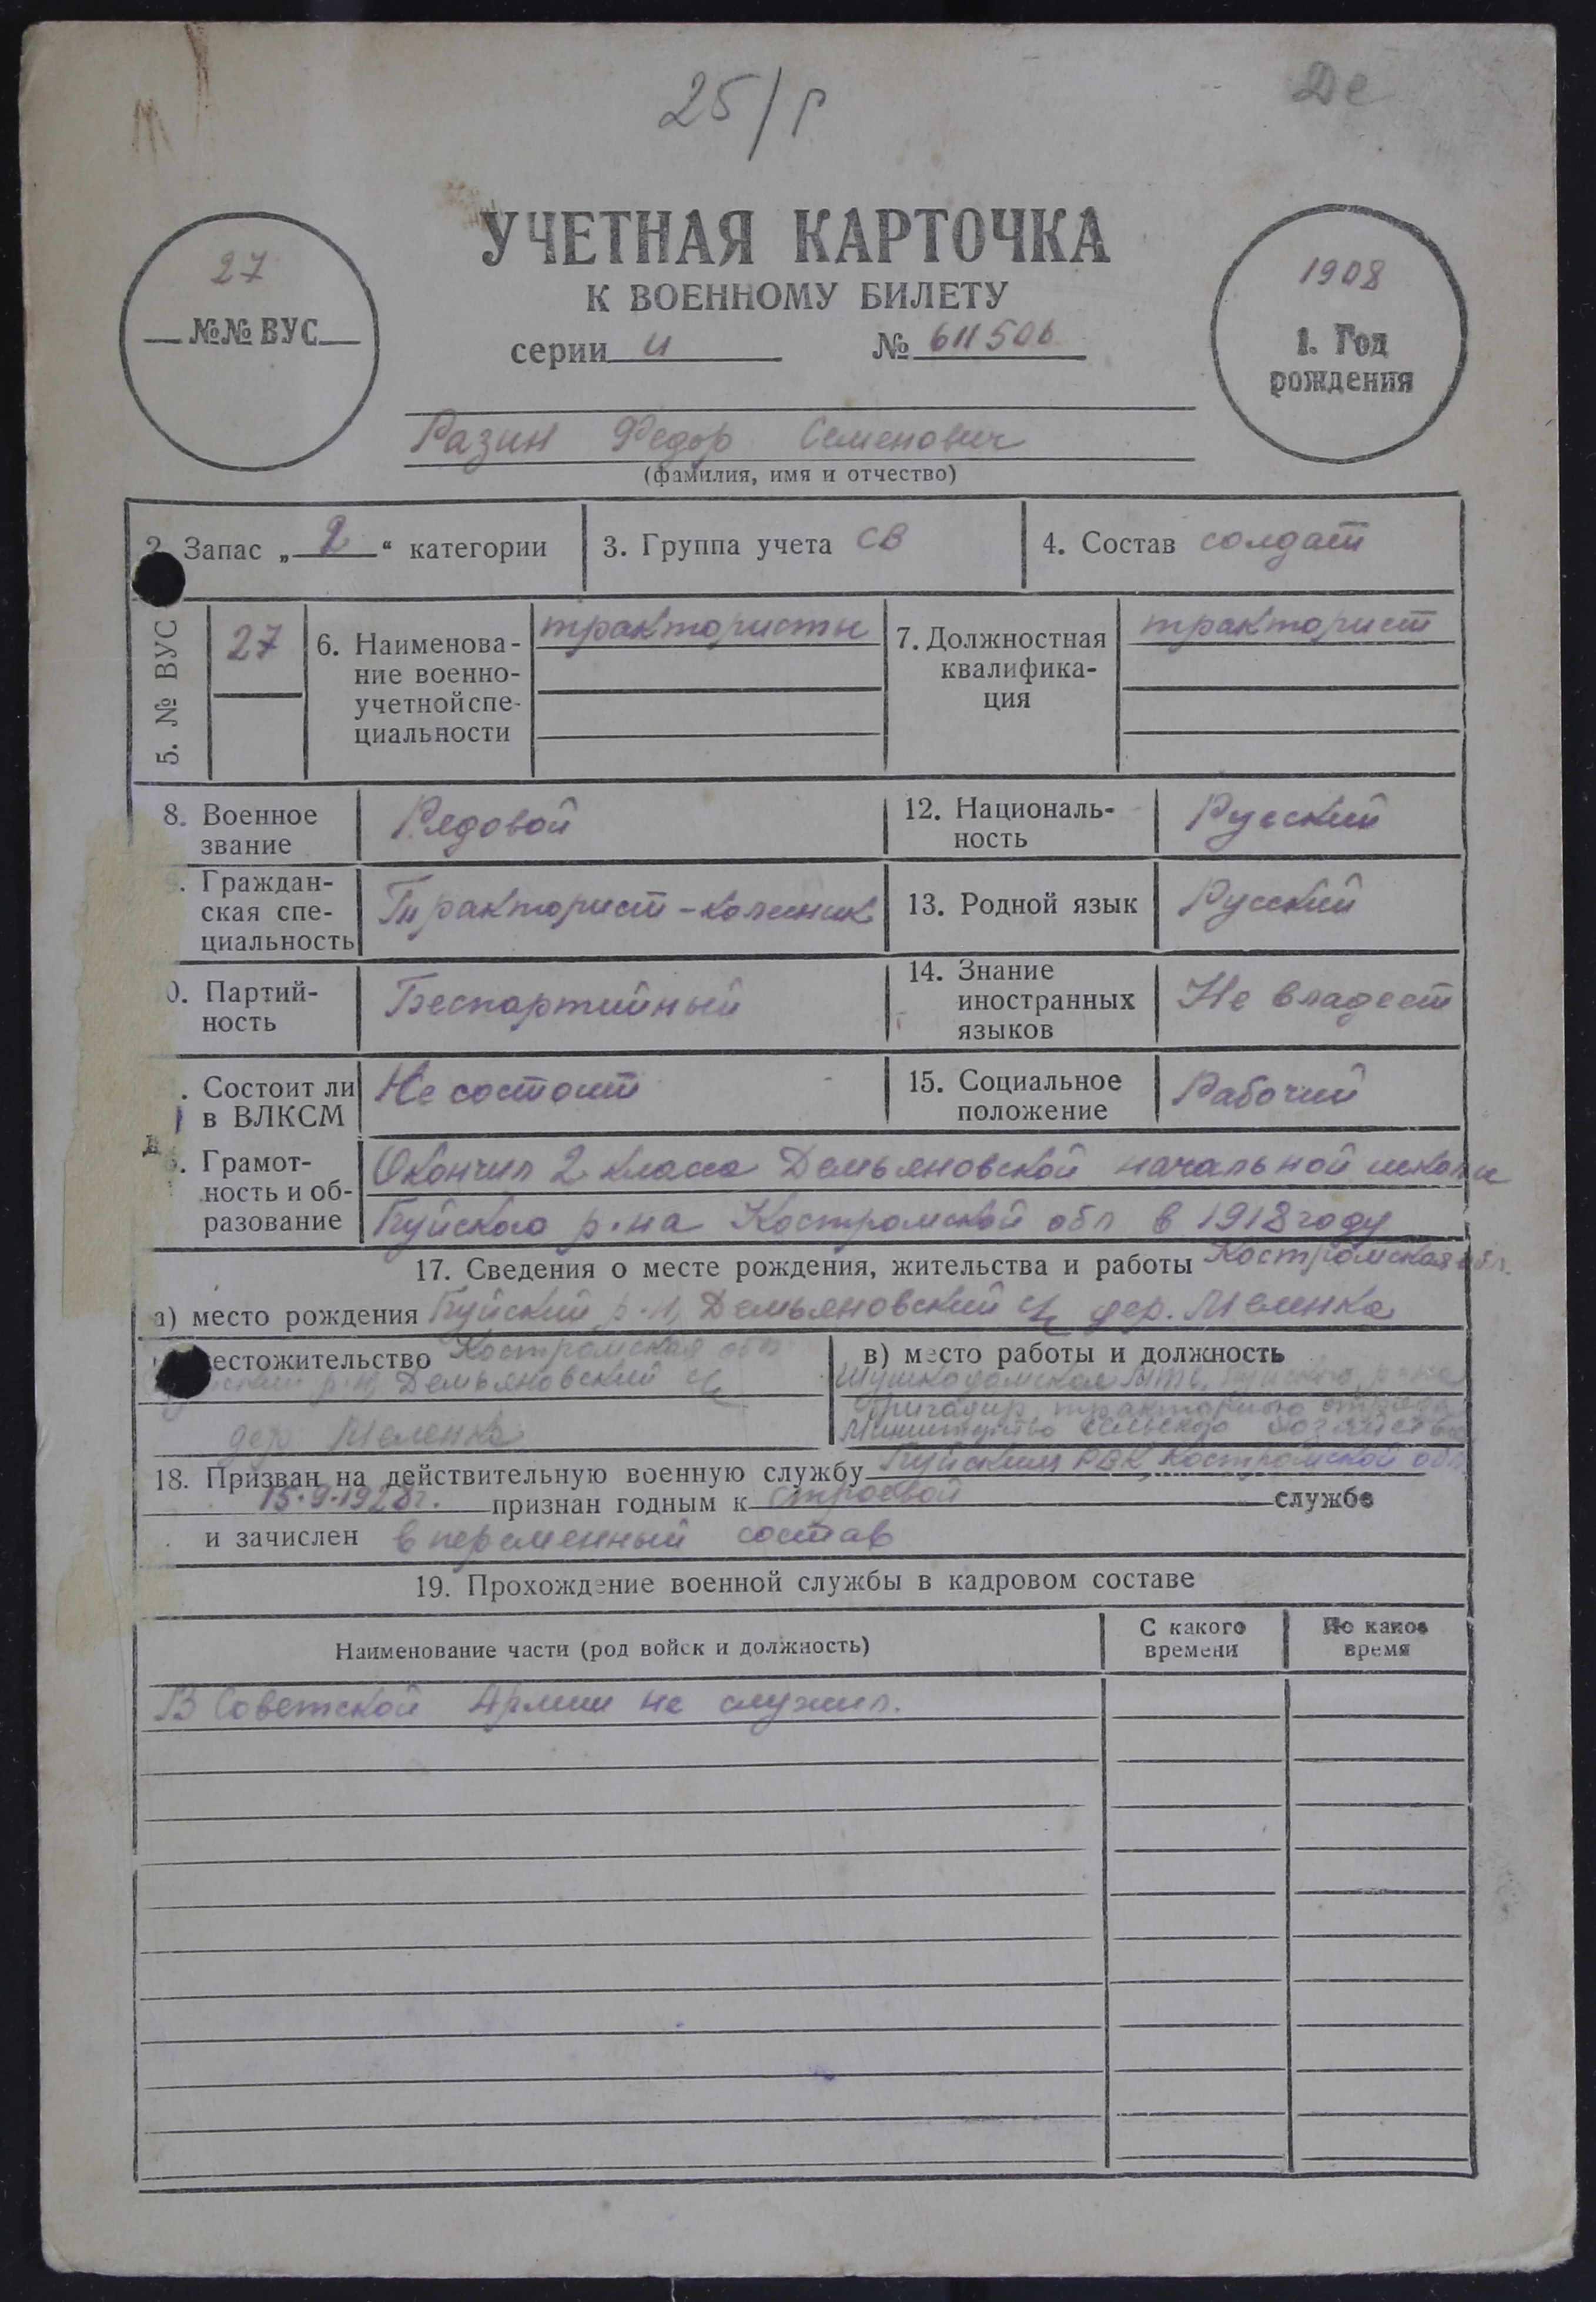 25/р
Де
УЧЕТНАЯ КАРТОЧКА
К ВОЕННОМУ БИЛЕТУ
серии И № 611506
27
№№ ВУС
1908
1. Год
рождения
Разин Федор Семенович
(фамилия, имя и отчество)
2. Запас „ 2 “ категории
3. Группа учета СВ
4. Состав солдат
5. № ВУС
27
6. Наименова-
ние военно-
учетной спе-
циальности
трактористы
7. Должностная
квалифика-
ция
тракторист
8. Военное
звание
Рядовой
12. Националь-
ность
Русский
. Граждан-
ская спе-
циальность
Тракторист-колесник
13. Родной язык
Русский
0. Партий-
ность
Беспартийный
14. Знание
иностранных
языков
Не владеет
. Состоит ли
в ВЛКСМ
Не состоит
15. Социальное
положение
Рабочий
. Грамот-
ность и об-
разование
Окончил 2 класса Демьяновской начальной школы
Буйского р-на Костромской обл в 1918 году
17. Сведения о месте рождения, жительства и работы Костромская обл.
а) место рождения Буйский р-н, Демьяновский с/с дер. Меленка
естожительство Костромская обл
р-н, Демьяновский с/с
дер Меленка
в) место работы и должность
Шушкодомская МТС, Буйского р-на
Бригадир тракторного отряда
Министерство сельского хозяйства
18. Призван на действительную военную службу Буйским РВК, Костромской обл.
15.9.1928г. признан годным к строевой службе
и зачислен в переменный состав
19. Прохождение военной службы в кадровом составе
Наименование части (род войск и должность)
С какого
времени
По какое
время
В Советской Армии не служил.